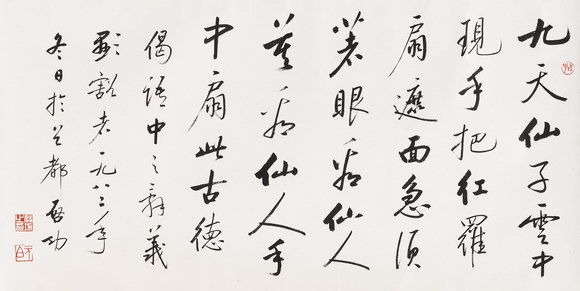 九天仙子雲中
現手把红羅
扇遮面急须
著眼看仙人
莫看仙人手
中扇此古德
偈語中之辞義
顯豁者一九八二年
冬日於首都启功